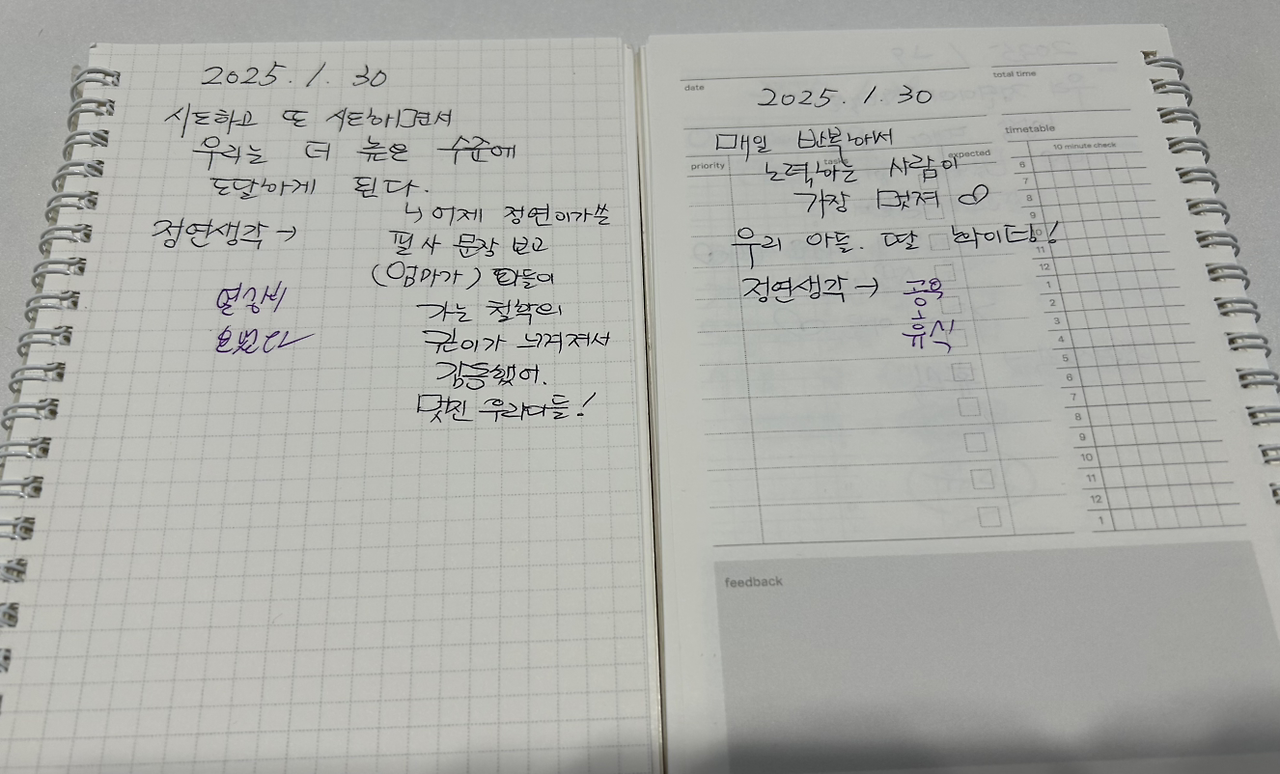 2025. 1. 30
시도하고 또 시도하면서
우리는 더 높은 수준에
도달하게 된다.
정연생각 →
↳ 어제 정연이가 쓴
필사 문장 보고
(엄마가) 아들이
가는 철학의
깊이가 느껴져서
감동했어.
멋진 우리아들!
date
total time
2025. 1. 30
매일 반복해서
노력하는 사람이
가장 멋져
우리 아들. 딸 화이팅!
정연생각 → 공부
휴식
priority
tasks
expected
timetable
10 minute check
6
7
8
9
10
11
12
1
2
3
4
5
6
7
8
9
10
11
12
1
feedback